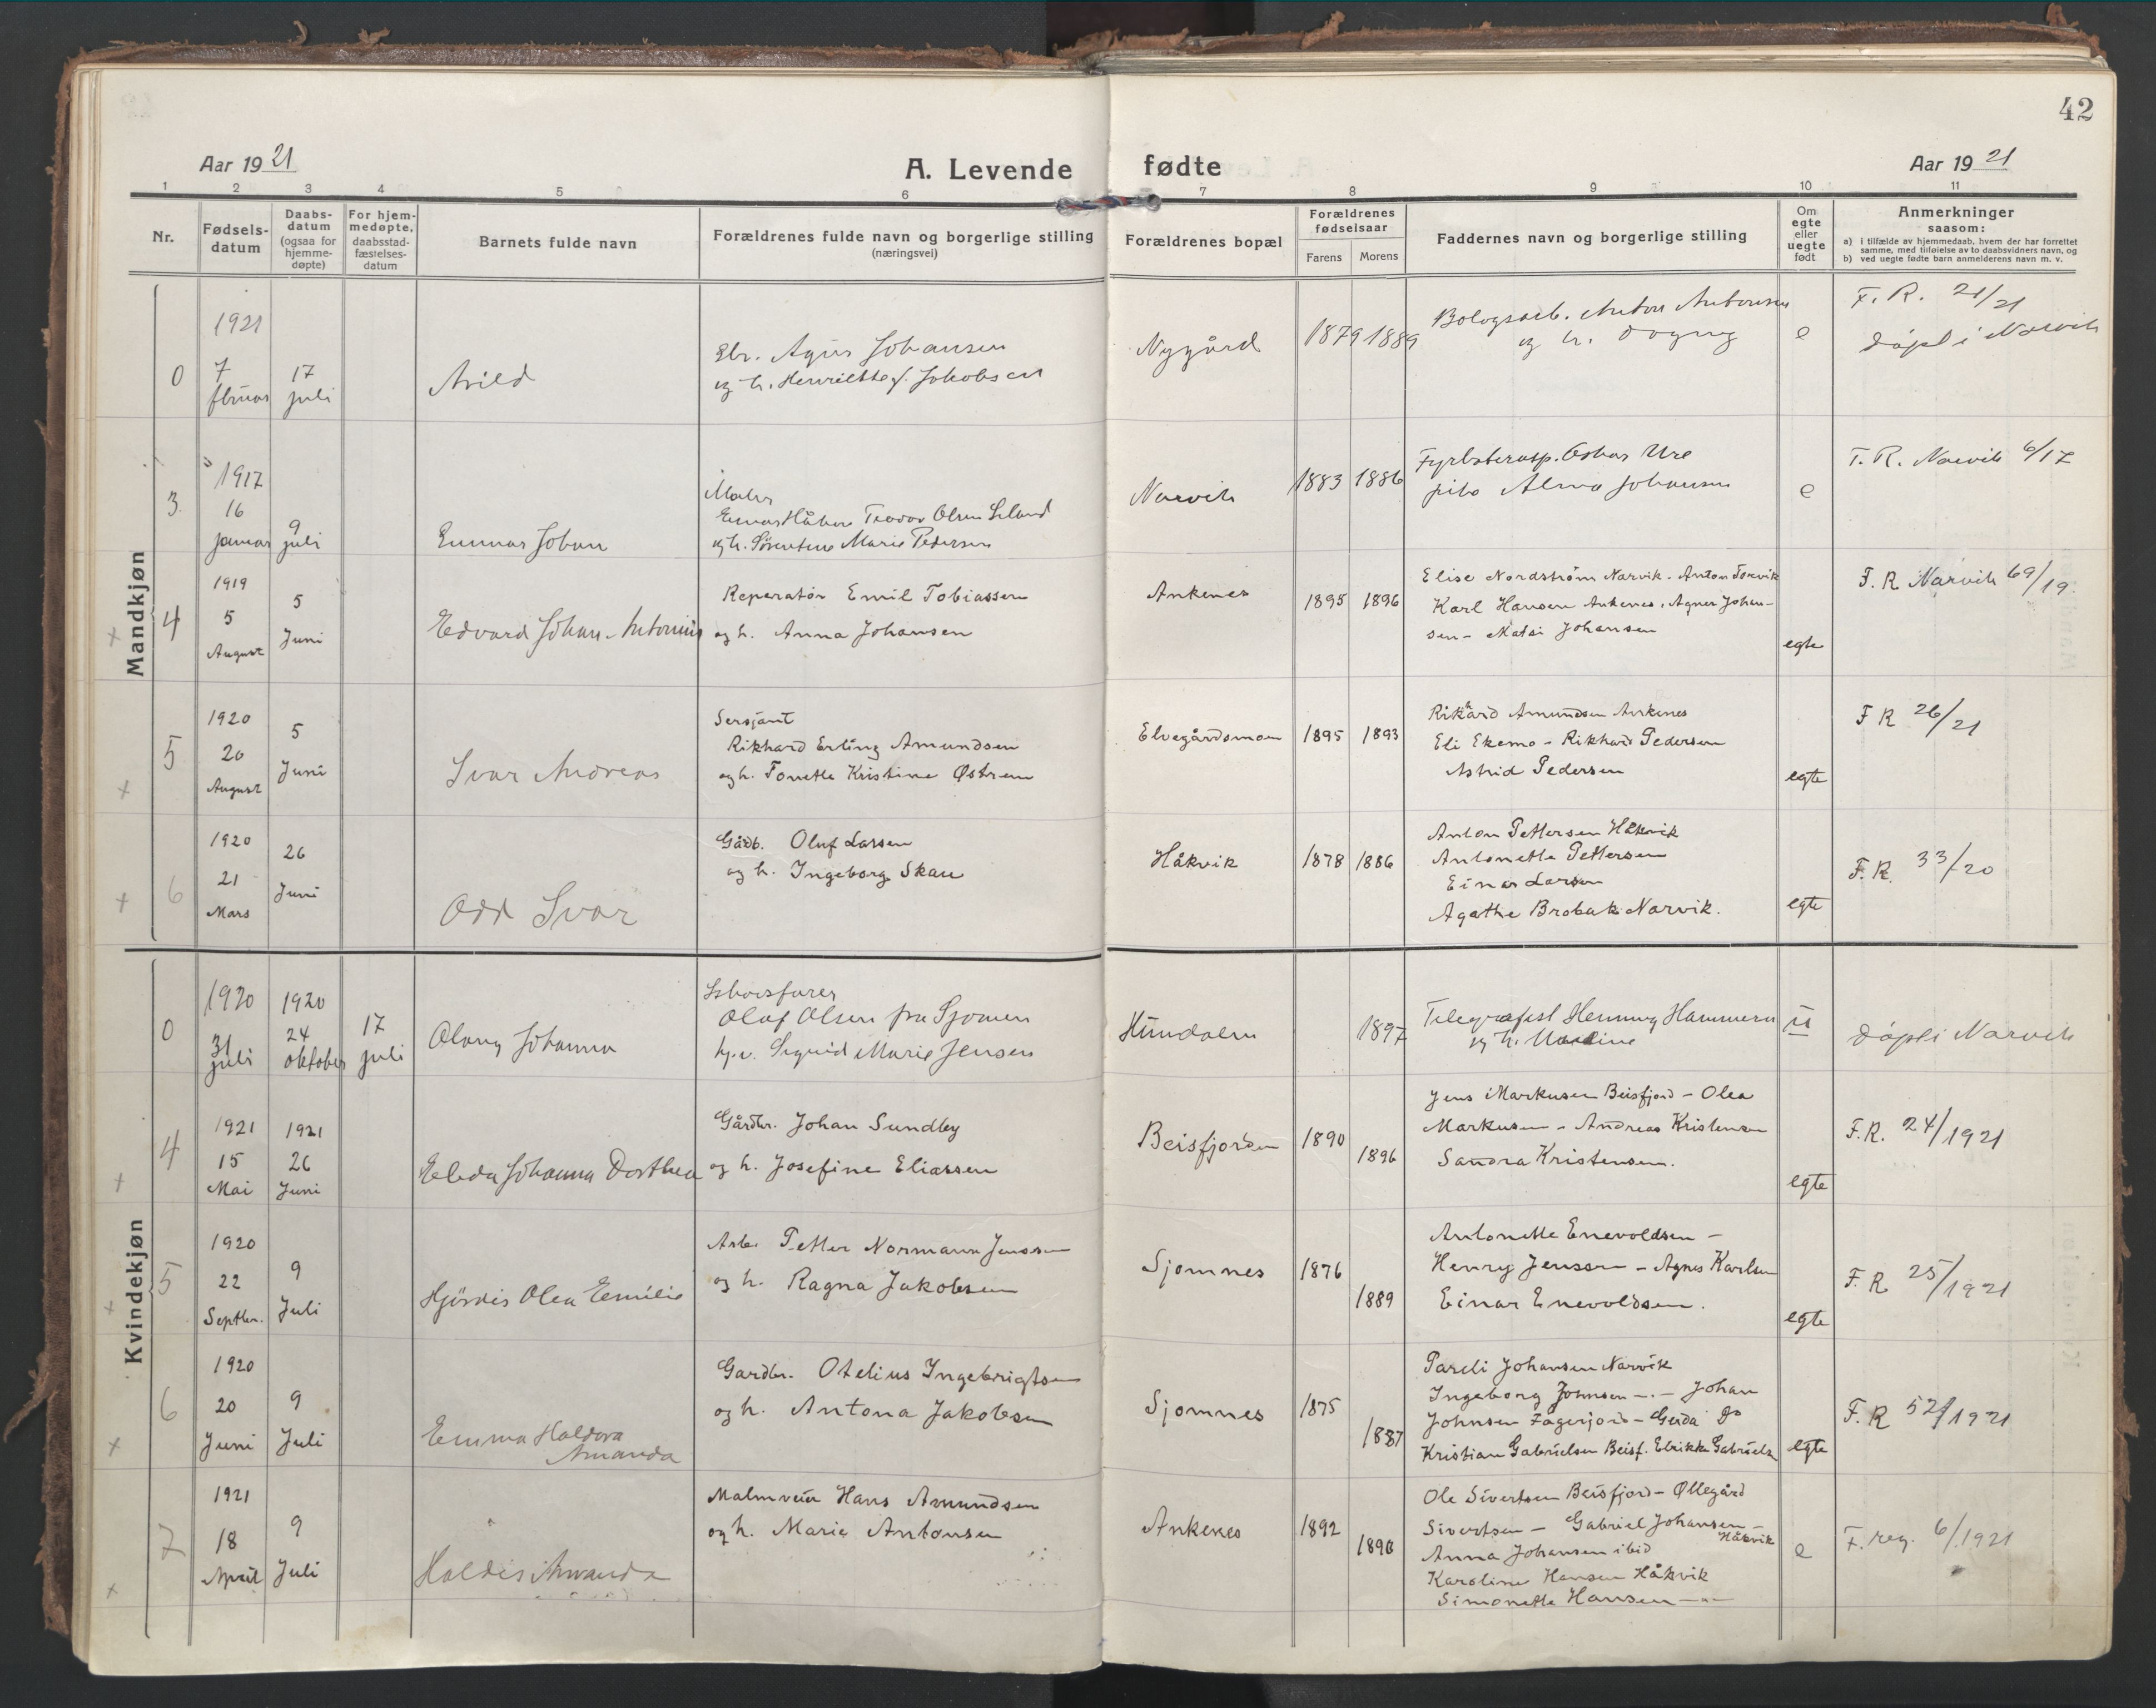 42
Aar 1921
A. Levende fødte
Aar 1921
1 2 3 4 5 6 7 8 9 10 11
Nr.
Fødsels-
datum
Daabs-
datum
(ogsaa for
hjemme-
døpte)
For hjem-
medøpte,
daabsstad-
fæstelses-
datum
Barnets fulde navn
Forældrenes fulde navn og borgerlige stilling
(næringsvei)
Forældrenes bopæl
Forældrenes
fødselsaar
Farens
Morens
Faddernes navn og borgerlige stilling
Om
egte
eller
uegte
født
Anmerkninger
saasom:
a) i tilfælde av hjemmedaab, hvem der har forrettet
samme, med tilføielse av to daabsvidners navn, og
b) ved uegte fødte barn anmelderens navn m. v.
Mandkjøn
0
1921
7
17
juli
Arild
Johansen
og h. Henriette f. Jakobsen
Nygård
1879 1889
Anton Antonsen
og h. Dagny
e
F. R. 21/21
døpt i Narvik
3
1917
16
januar
9
juli
Gunnar Johan
Maler
Olsen
og h. Marie Pedersen
Narvik
1883 1886
Oskar Ure
Alma Johansen
e
F. R. Narvik 6/17
4
1919
5
August
5
Juni
Edvard Johan Antonius
Reparatør Emil Tobiassen
og h. Anna Johansen
Ankenes
1895 1896
Elise Nordstrøm Narvik - Anton Torvik
Karl Hansen Ankenes, Agner Johan-
sen - Johansen
egte
F. R Narvik 69/19
5
1920
20
August
5
Juni
Ivar Andreas
Sersjant
Rikhard Erling Amundsen
og h. Tonette Kristine Østrem
Elvegårdsmoen
1895 1893
Rikard Amundsen Ankenes
Eli Ekemo - Rikhard Pedersen
Astrid Pedersen
egte
F R 26/21
6
1920
21
Mars
26
Juni
Odd Ivar
Gårdb. Oluf Larsen
og h. Ingeborg Skau
Håkvik
1878 1886
Anton Pettersen Håkvik
Antonette Pettersen
Einar Larsen
Agathe Brobak Narvik.
egte
F. R. 33/20
Kvindekjøn
0
1920
31
juli
1920
24
oktober
17
juli
Olaug Johanna
Olaf Olsen fra Sjomen
Sigrid Marie Jensen
Hundalen
1897
Telegrafist Henning Hammern
og h.
u
døpt i Narvik
4
1921
15
Mai
1921
26
Juni
Johanna Dorthea
Gårdbr. Johan Sundby
og h. Josefine Eliassen
Beisfjorden
1890
1896
Jens Markusen Beisfjord - Olea
Markusen - Andreas Kristensen
Sandra Kristensen.
egte
F. R. 24/1921
5
1920
22
Septbr.
9
Juli
Hjørdis Olea Emilie
Arb. Petter Normann Jenssen
og h. Ragna Jakobsen
Sjomnes
1876
1889
Antonette Enevoldsen -
Henry Jenssen - Agnes Karlsen
Einar Enevoldsen.
egte
F. R. 25/1921
6
1920
20
Juni
9
Juli
Emma Haldora
Amanda
Gardbr. Otelius Ingebrigtsen
og h. Antona Jakobsen
Sjomnes
1875
1887
Pareli Johansen Narvik
Ingeborg Johnsen -.- Johan
Johnsen Fagerjord - Gerda Do
Kristian Gabrielsen Beisf. Elrikke Gabrielsen
egte
F. R 52/1921
7
1921
18
April
9
Juli
Haldis Amanda
Hans Amundsen
og h. Marie Antonsen
Ankenes
1892
1890
Ole Sivertsen Beisfjord - Øllegård
Sivertsen - Gabriel Johansen -
Håkvik
Anna Johansen ibid
Karoline Hansen Håkvik
Simonette Hansen -"-
e
F. reg. 6/1921